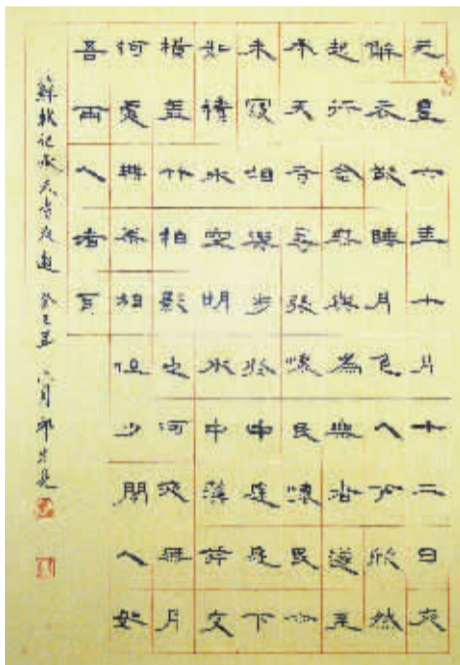 元豐六年十月十二日夜
解衣欲睡月色入戶欣然
起行念無與為樂者遂至
承天寺尋張懷民懷民亦
未寢相與步於中庭庭下
如積水空明水中藻荇交
橫盖竹柏影也何夜無月
何處無竹柏但少閒人如
吾兩人者耳
蘇軾記承天寺夜遊 癸巳年 月